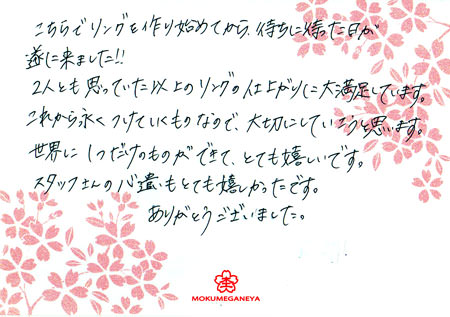 こちらでリングを作り始めてから、待ちに待った日が
遂に来ました!!
2人とも思っていた以上のリングの仕上がりに大満足しています。
これから永くつけていくものなので、大切にしていこうと思います。
世界に1つだけのものができて、とても嬉しいです。
スタッフさんの心遣いもとても嬉しかったです。
ありがとうございました。
MOKUMEGANEYA